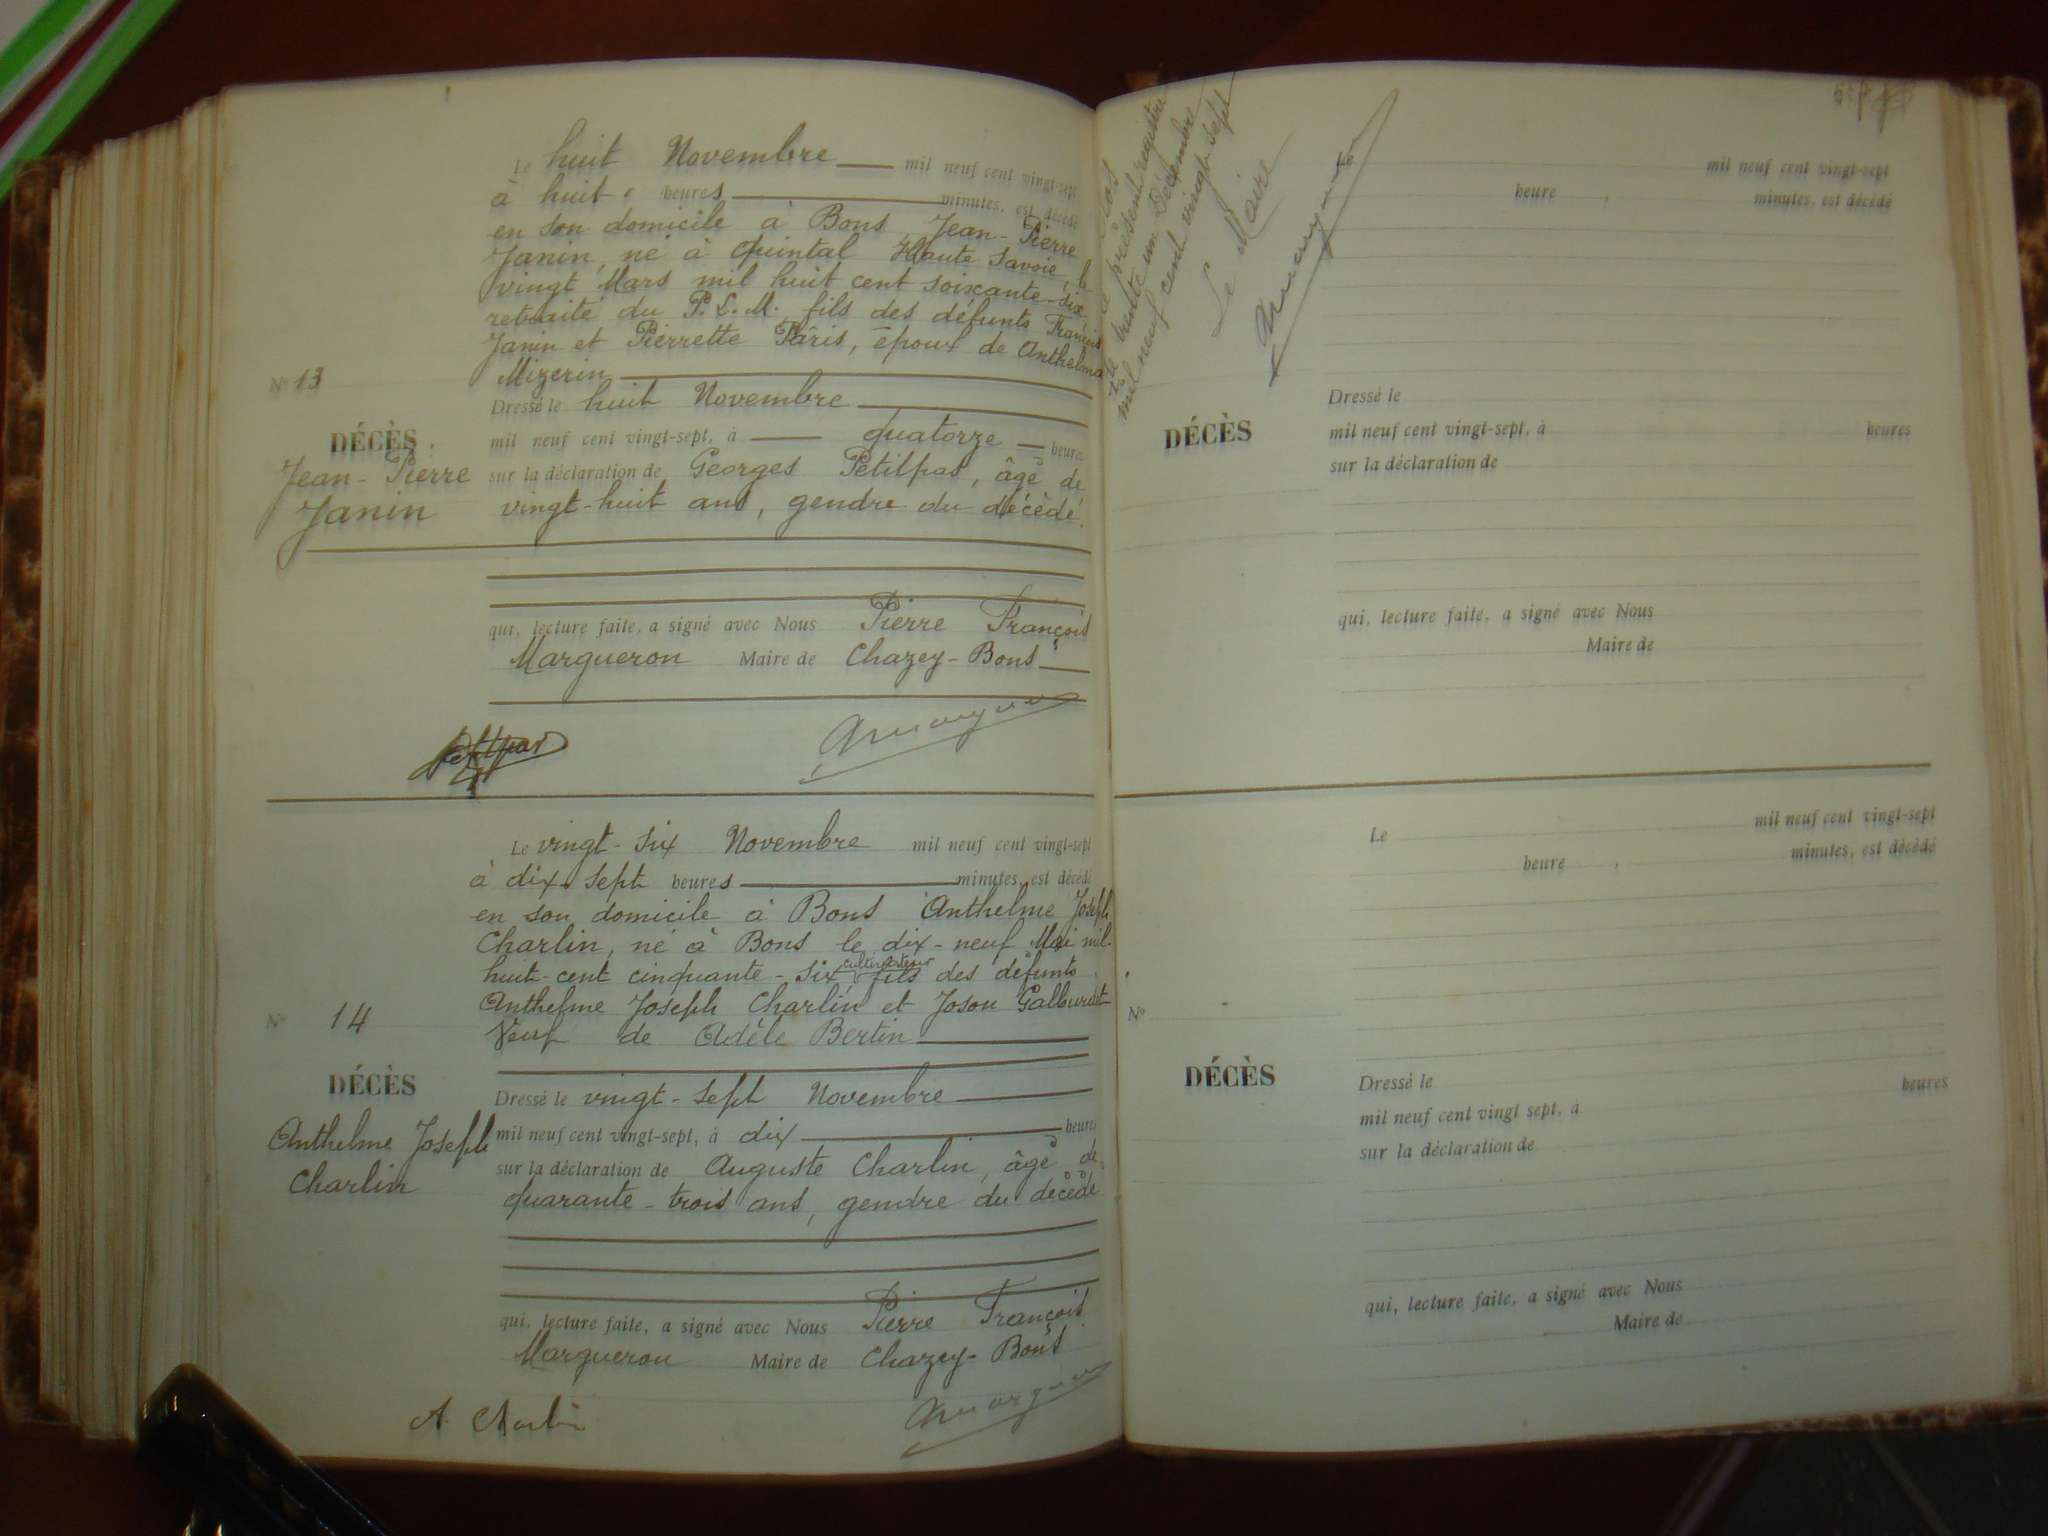 Le huit Novembre mil neuf cent vingt-sept
à huit heures minutes, est décédé
en son domicile à Bons Jean-Pierre
Janin, né à Quintal Haute Savoie, le
vingt Mars mil huit cent soixante-six
retraité du P. L. M. fils des défunts François
Janin et Pierrette Pâris, époux de Anthelma
Mizerin
Nº 13
Dressé le huit Novembre
mil neuf cent vingt-sept, à quatorze heures
DÉCÈS
sur la déclaration de Georges Petitpas, âgé de
Jean-Pierre
vingt-huit ans, gendre du décédé.
Janin
qui, lecture faite, a signé avec Nous Pierre François
Margueron Maire de Chazey-Bons
Petitpas
Le vingt-six Novembre mil neuf cent vingt-sept
à dix-sept heures minutes, est décédé
en son domicile à Bons Anthelme Joseph
Charlin, né à Bons le dix-neuf Mai mil-
huit-cent cinquante-six cultivateur fils des défunts
Anthelme Joseph Charlin et Joson
Veuf de Adèle Bertin
Nº 14
DÉCÈS
Dressé le vingt-sept Novembre
Anthelme Joseph
mil neuf cent vingt-sept, à dix heures
Charlin
sur la déclaration de Auguste Charlin, âgé de
quarante-trois ans, gendre du décédé
qui, lecture faite, a signé avec Nous Pierre François
Margueron Maire de Chazey-Bons
A. Charlin
présent registre
le trente un Décembre
mil neuf cent vingt-sept
Le Maire
Le mil neuf cent vingt-sept
heure , minutes, est décédé
Dressé le
DÉCÈS
mil neuf cent vingt-sept, à heures
sur la déclaration de
qui, lecture faite, a signé avec Nous
Maire de
Le mil neuf cent vingt-sept
heure , minutes, est décédé
Nº
DÉCÈS
Dressé le heures
mil neuf cent vingt sept, à
sur la déclaration de
qui, lecture faite, a signé avec Nous
Maire de